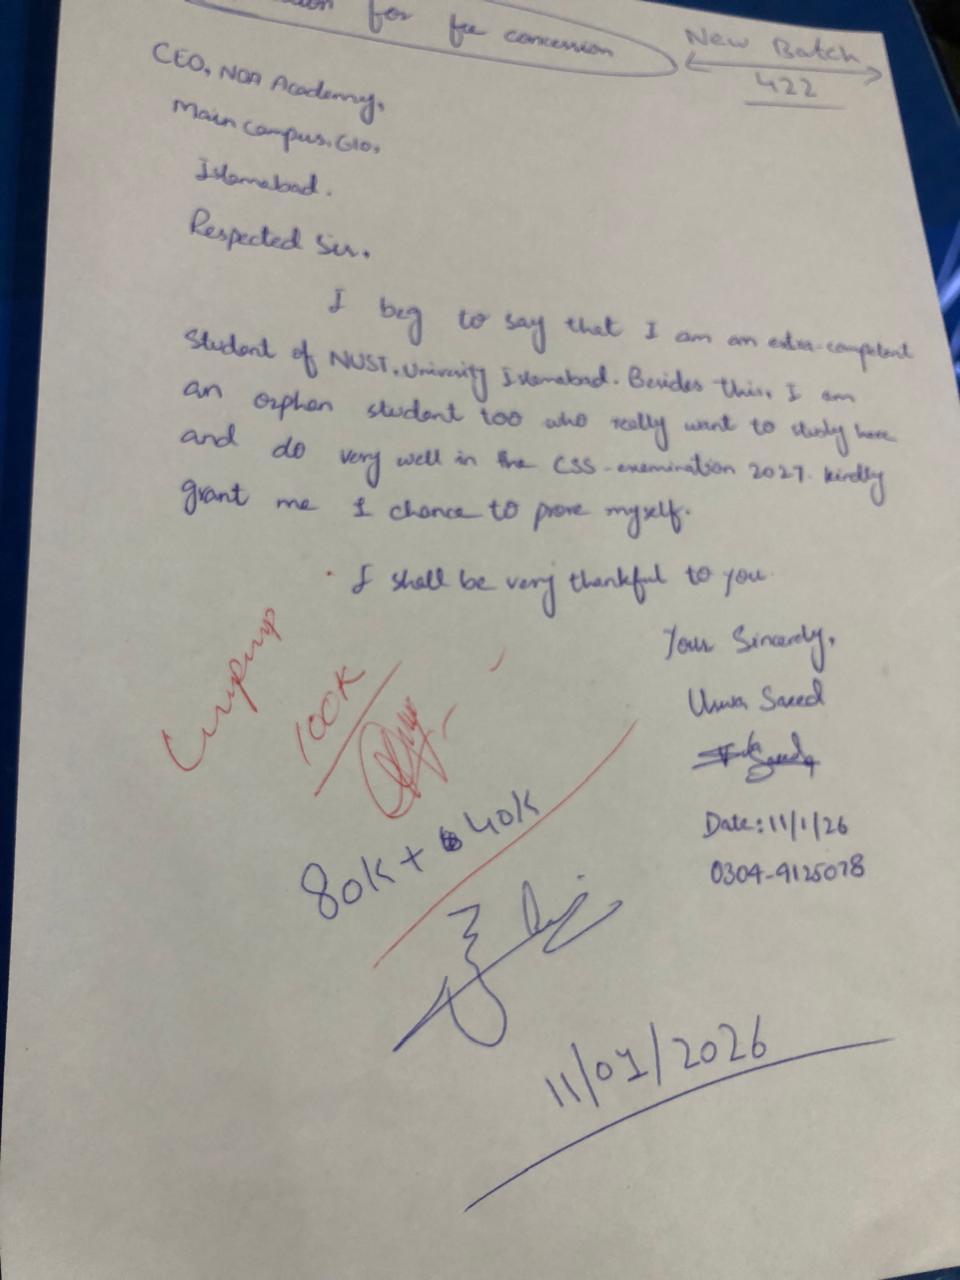 for fee concession
New Batch
422
CEO, NOA Academy,
Main campus, G10,
Islamabad.
Respected Sir,
I beg to say that I am an extra-competent
student of NUST, University Islamabad. Besides this, I am
an orphan student too who really want to study here
and do very well in the CSS-examination 2027. kindly
grant me 1 chance to prove myself.
I shall be very thankful to you.
Your Sincerely,
Uswa Saeed
Date: 11/1/26
0304-9125078
100K
80K + 40K
11/01/2026